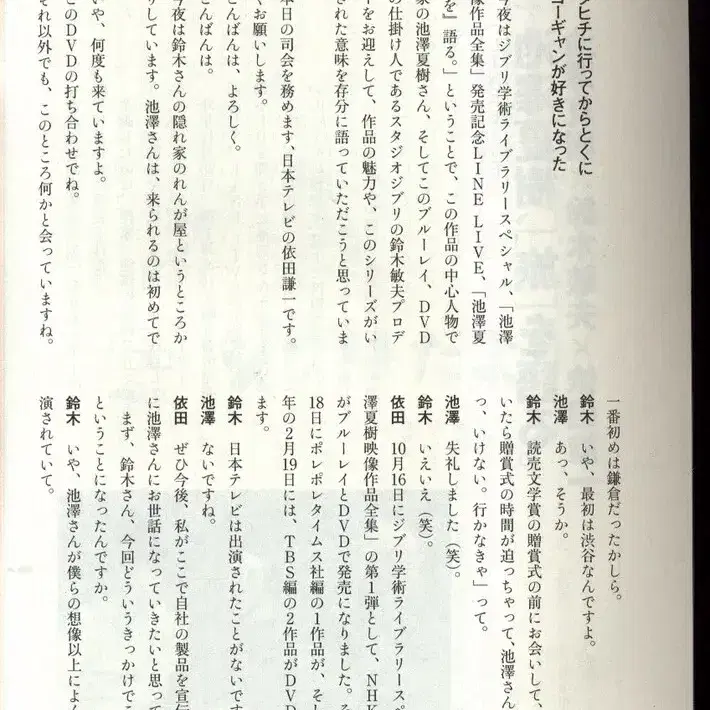 タヒチに行ってからとくに
ゴーギャンが好きになった
今夜はジブリ学術ライブラリースペシャル、「池澤
像作品全集」発売記念LINE LIVE、「池澤夏
を』語る。」ということで、この作品の中心人物で
家の池澤夏樹さん、そしてこのブルーレイ、DVD
の仕掛け人であるスタジオジブリの鈴木敏夫プロデ
ーをお迎えして、作品の魅力や、このシリーズがい
された意味を存分に語っていただこうと思っていま
本日の司会を務めます、日本テレビの依田謙一です。
くお願いします。
こんばんは、よろしく。
こんばんは。
今夜は鈴木さんの隠れ家のれんが屋というところか
りしています。池澤さんは、来られるのは初めてで
いや、何度も来ていますよ。
このDVDの打ち合わせでね。
それ以外でも、このところ何かと会っていますね。
一番初めは鎌倉だったかしら。
鈴木 いや、最初は渋谷なんですよ。
池澤 あっ、そうか。
鈴木 読売文学賞の贈賞式の前にお会いして、
いたら贈賞式の時間が迫っちゃって、池澤さん
っ、いけない。行かなきゃ」って。
池澤 失礼しました（笑）。
鈴木 いえいえ（笑）。
依田 10月16日にジブリ学術ライブラリースペ
澤夏樹映像作品全集」の第1弾として、NHK
がブルーレイとDVDで発売になりました。そ
18日にポレポレタイムス社編の1作品が、そし
年の2月19日には、TBS編の2作品がDVD
ます。
鈴木 日本テレビは出演されたことがないです
池澤 ないですね。
依田 ぜひ今後、私がここで自社の製品を宣伝
に池澤さんにお世話になっていきたいと思って
まず、鈴木さん、今回どういうきっかけでこ
ということになったんですか。
鈴木 いや、池澤さんが僕らの想像以上によく
演されていて。